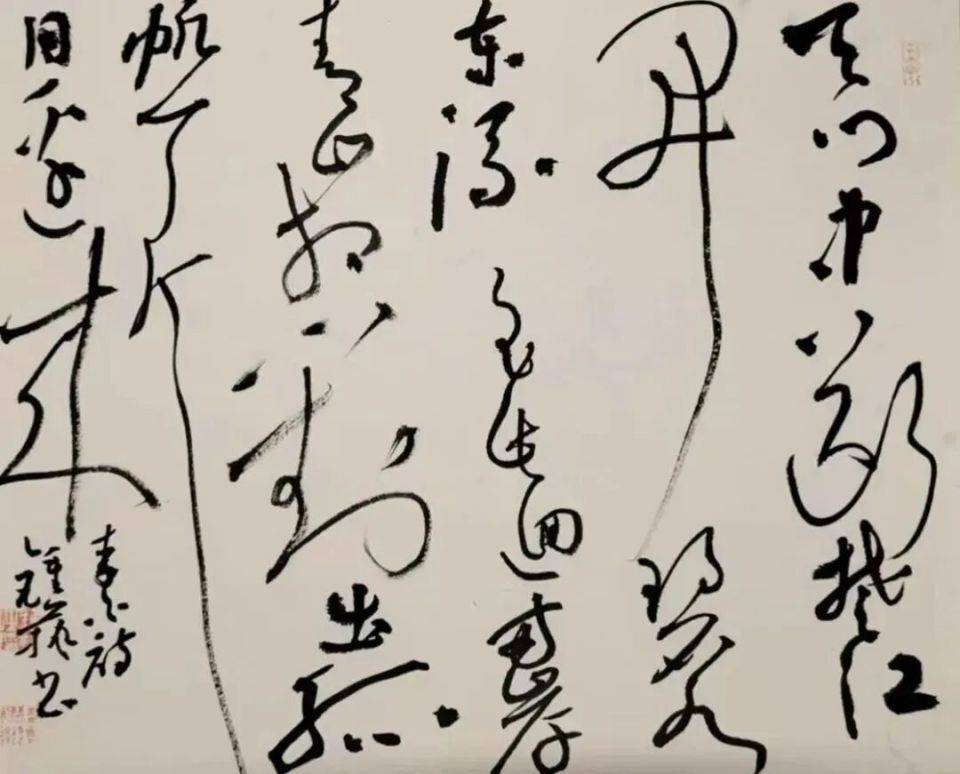 天门中断楚江
开碧水
东流至此迴两岸
青山相对出孤
帆一片
日边来
李白诗
书